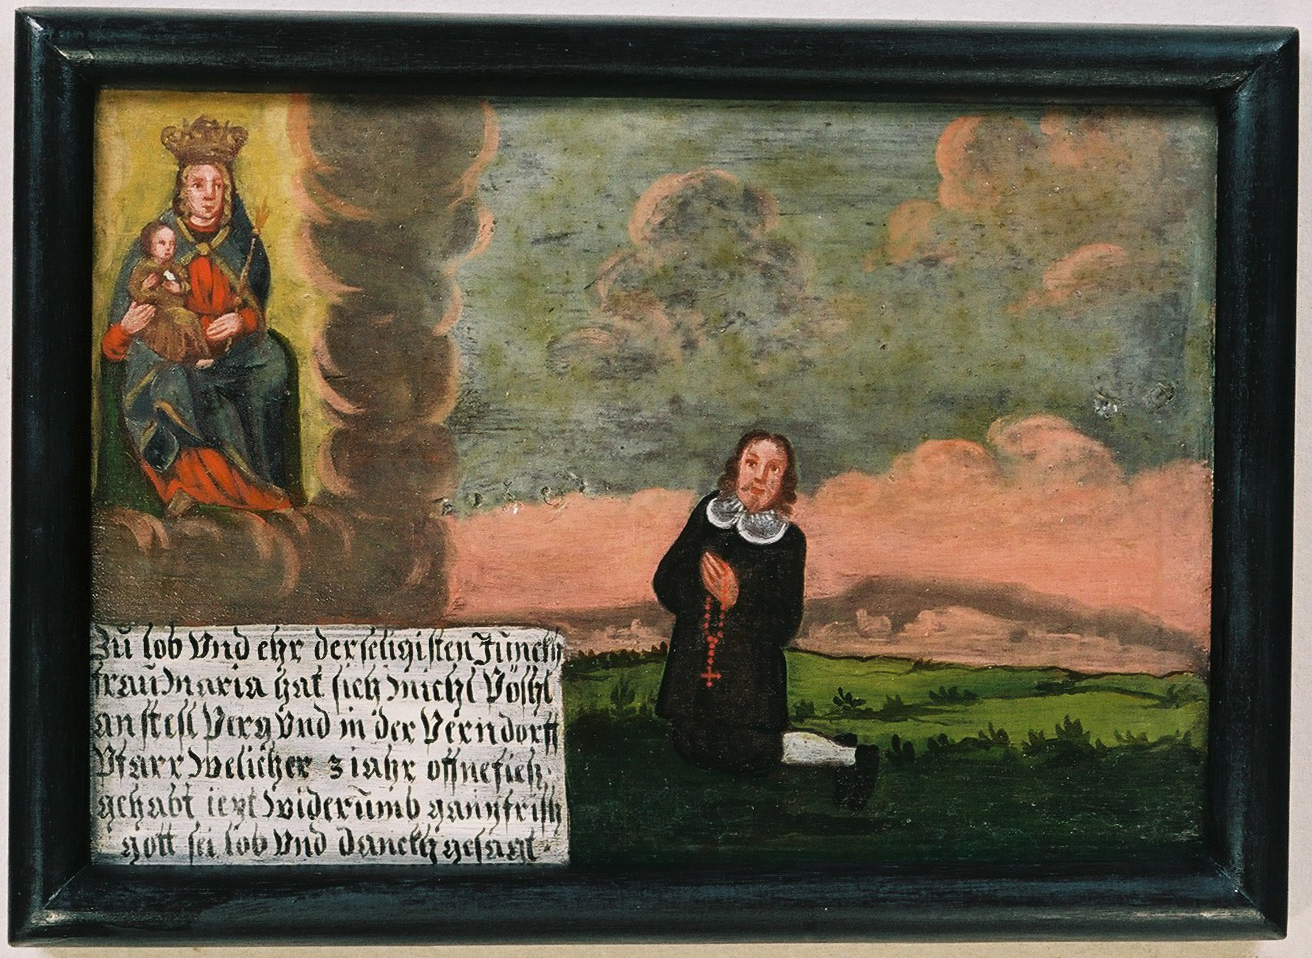 Zu lob Vnd ehr der seligisten Junckh
frau Maria hat sich Michl Vöschl
an stell Verg Vnd in der Verndorff
Pfarr Welicher 3 iahr offne fiesh
gehabt iezt Widerumb ganz frish
gott sei lob Vnd danckh gesagt.